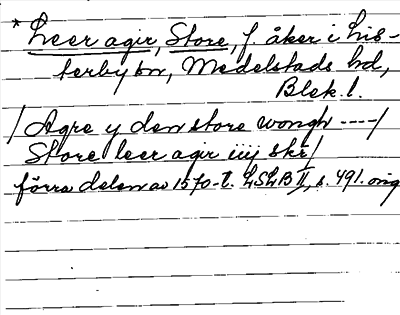 * Leer agir, Store, f. åker i Lis-
terby sn, Medelstads hd,
Blek. l.
/Agre y den store wongh ----/
Store leer agir iiij skr/
förra delen av 1570-t. LSLB II, s. 491. orig